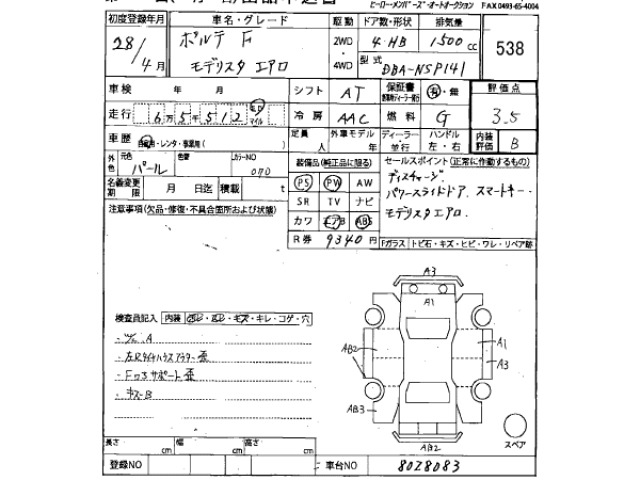 ヒーローメンバーズ・オートオークション FAX 0493-65-4004
初度登録年月 車名・グレード 駆動 ドア数・形状 排気量
28/4月 ポルテ F 2WD・4WD 4・HB 1500cc 538
モデリスタ エアロ 型式 DBA-NSP141
車検 年 月 シフト AT 保証書 有・無 評価点
走行 6万5千512 km マイル 冷房 AAC 燃料 G 3.5
車歴 自家用・レンタ・事業用( ) 定員 人 外車モデル 年 ディーラー・並行 ハンドル 左・右 内装評価 B
外色 元色 パール 色替 カラーNO 070 装備品(純正品に限る) セールスポイント(正常に作動するもの)
名義変更期限 月 日迄 積載 t PS PW AW ディスチャージ.
注意事項(欠品・修復・不具合箇所および状態) SR TV ナビ パワースライドドア. スマートキー.
カワ エアB ABS モデリスタエアロ.
R券 9340円 Fガラス トビ石・キズ・ヒビ・ワレ・リペア跡
A3
A1
検査員記入 内装 ヨレ・キレ・コゲ・穴
A
A1
AB2
A3
・Fロアサポート歪
・キズB
AB3
スペア
AB2
長さ cm 幅 cm 高さ cm
登録NO 車台NO 8028083